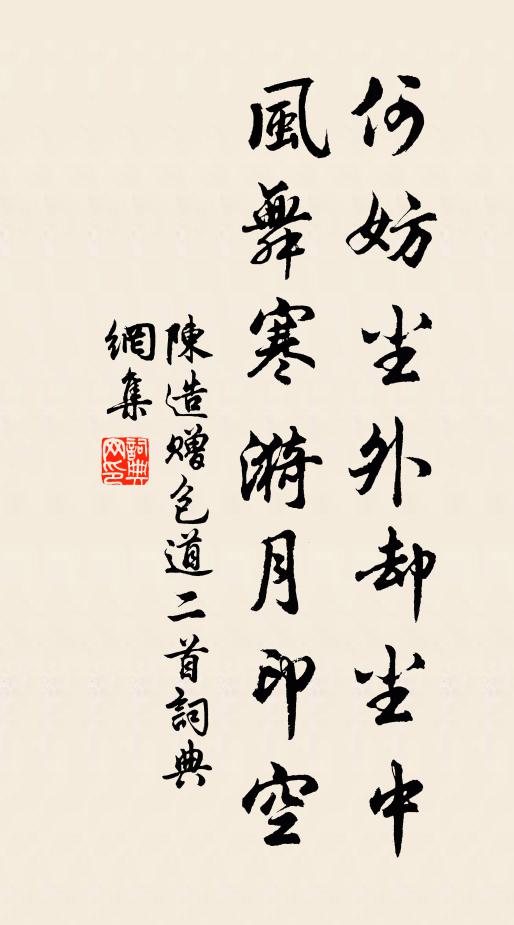 何妨尘外却尘中
風舞寒漪月印空
陳造赠包道二首詞典
網集
詞典
網印